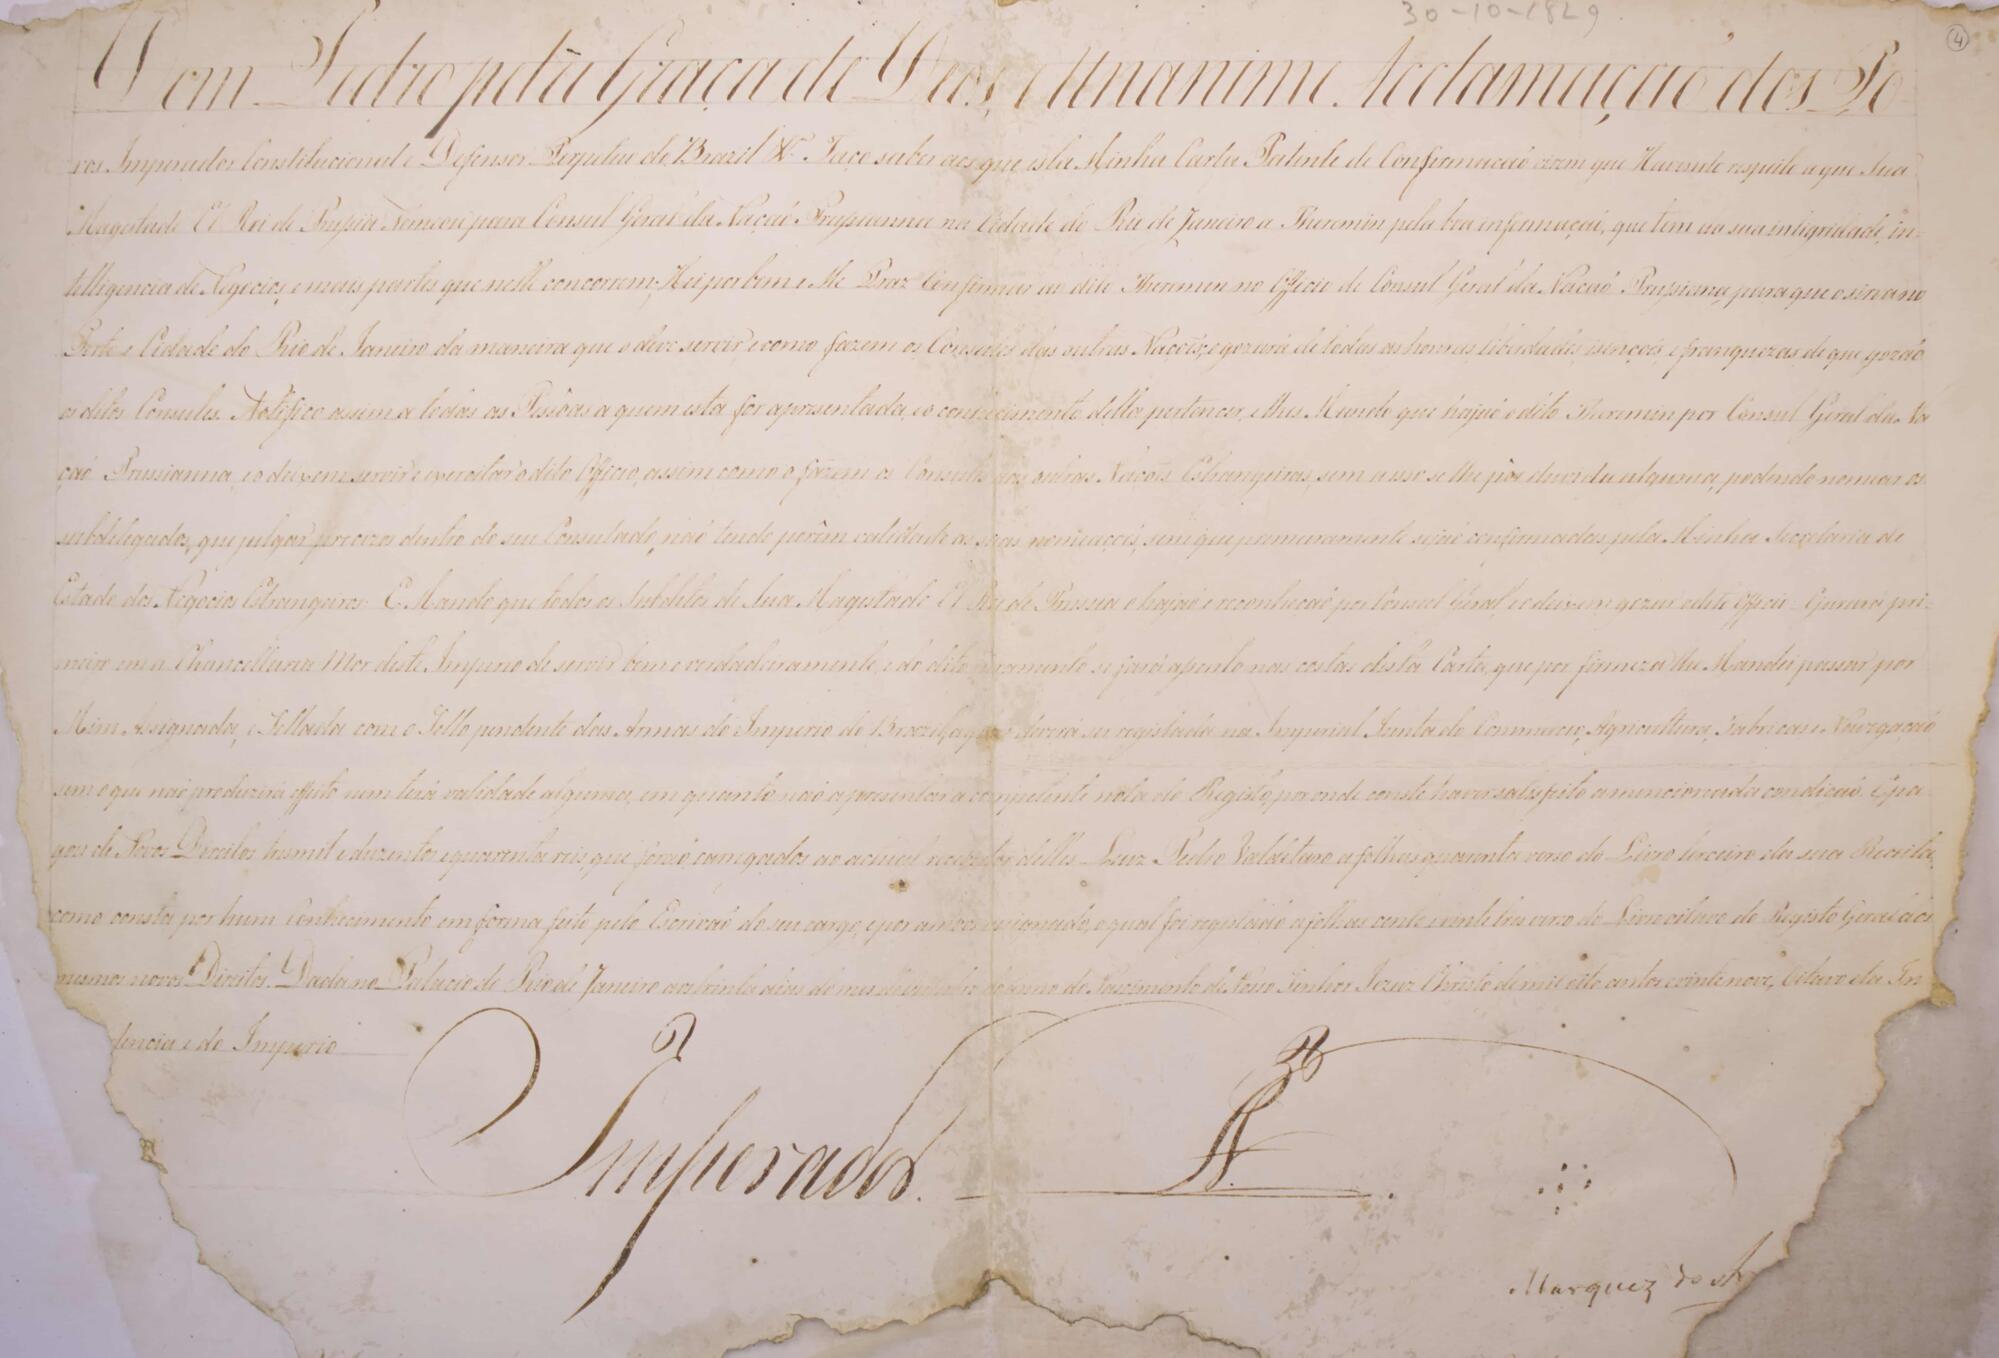 30-10-1829
4
Dom Pedro pela Graça de Deos, e Unanime Acclamaçaõ dos Po-
vos Imperador Constitucional e Defensor Perpetuo do Brazil &ª Faço saber aos que esta Minha Carta Patente de Confirmacaõ virem que Havendo respeito a que Sua
Magestade El Rei de Prussia Nomeou para Consul Geral da Naçaõ Prussianna na Cidade do Rio de Janeiro a Theremin pela boa informaçaõ, que tem da sua intigridade, in-
telligencia de Negocios, e mais partes que nelle concorrem; Hei por bem e Me Praz Confirmar ao dito Theremin no Officio de Consul Geral da Nacaõ Prussiana, para que o sirva no
Porto e Cidade do Rio de Janeiro da maneira que o deve servir, e como fazem os Consules das outras Nações, e gozará de todas as honras, liberdades, isenções, e franquezas, de que gozaõ
os ditos Consules. Notifico assim a todas as Pessoas a quem esta for apresentada, e o conhecimento della pertencer, e lhes Mando que hajaõ o dito Theremin por Consul Geral da Na
çaõ Prussianna, e o deixem servir e exercitar o dito Officio, assim como o fazem os Consules das outras Nacoẽs Estrangeiras, sem a isso se lhe pôr duvida alguma, podendo nomear os
subdelegados, que julgar precizos dentro do seu Consulado, naõ tendo porêm validade as suas nomeaçoẽs, sem que primeiramente sejaõ confirmadas pela Minha Secretaria de
Estado dos Negocios Estrangeiros. E Mando que todos os Subditos de Sua Magestade El Rei de Prussia o hajaõ e reconheçaõ por Consul Geral, e o deixem gozar o dito Officio. Jurará pri-
meiro em a Chancellaria Mór deste Imperio de servir bem e verdadeiramente, e do dito juramento se fará assento nas costas desta Carta, que por firmeza lhe Mandei passar por
Mim Assignada, e Sellada com o Sello pendente das Armas do Imperio do Brazil, a qual deverá ser registada na Imperial Junta do Commercio, Agricultura, Fabricas e Navegaçaõ
sem o que naõ produzirá effeito nem terá validade alguma, em quanto naõ apresentar a competente nota do Registo, por onde conste haver satisfeito a mencionada condicaõ. E pa-
gou de Novos Direitos tres mil e duzentos e quarenta reis, que foraõ carregados ao actual recebedor delles Luiz Pedro Valdetaro a folhas quarenta verso do Livro terceiro da sua Receita,
como consta por hum Conhecimento em forma feito pelo Escrivaõ do seu cargo, e por ambos assignado, o qual foi registado a folhas cento e vinte tres verso do Livro oitavo do Registo Geral dos
mesmos novos Direitos. Dada no Palacio do Rio de Janeiro aos trinta dias do mes de Outubro do anno do Nascimento de Nosso Senhor Jezus Christo de mil oito centos e vinte nove, Oitavo da In-
dencia e do Imperio
Imperador
Marquez do